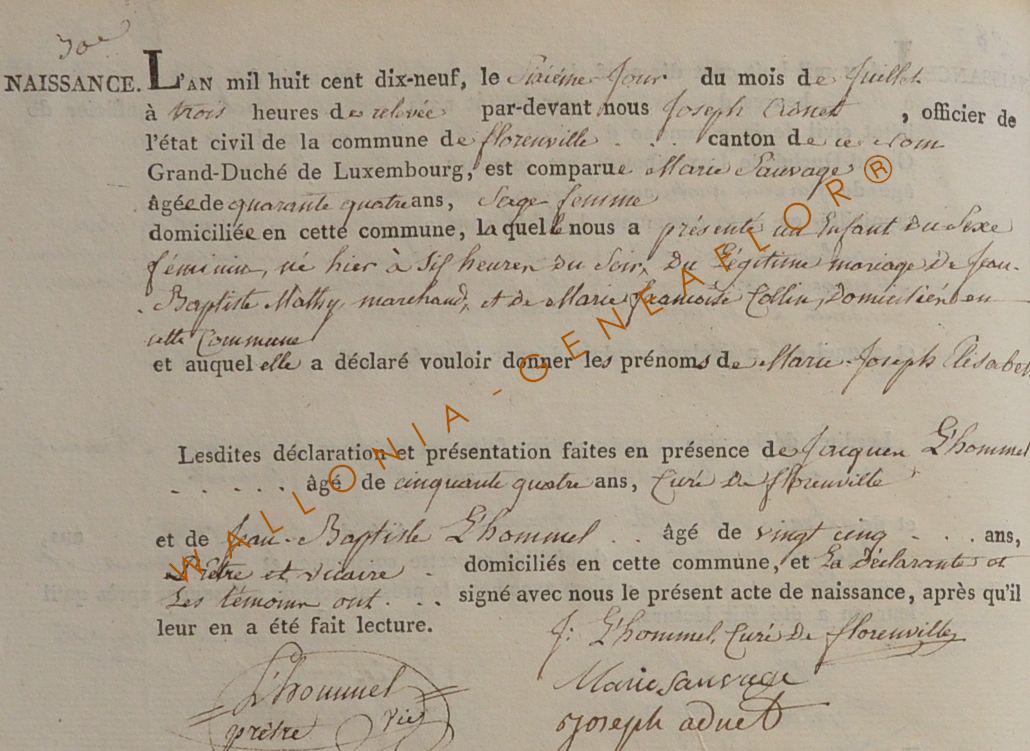 30e
NAISSANCE. L'AN mil huit cent dix-neuf, le Sixiéme Jour du mois de Juillet
à trois heures de relevée par-devant nous Joseph , officier de
l'état civil de la commune de florenville . . . canton de ce nom
Grand-Duché de Luxembourg, est comparue Marie Sauvage
âgée de quarante quatre ans, Sage femme
domiciliée en cette commune, laquelle nous a présenté un Enfant Du Sexe
féminin, né hier à Six heures Du Soir, Du Légitime mariage De Jean-
Baptiste Mathy, marchand, et de Marie françoise Collin, Domiciliés en
cette Commune
et auquel elle a déclaré vouloir donner les prénoms de Marie-Joseph Elisabet
Lesdites déclaration et présentation faites en présence de Jacques L'hommel
. . . . . . âgé de cinquante quatre ans, Curé De florenville
et de Jean-Baptiste L'hommel . . âgé de vingt cinq . . . ans,
Prêtre et vicaire . domiciliés en cette commune, et La Déclarante et
Les témoins ont . . . signé avec nous le présent acte de naissance, après qu'il
leur en a été fait lecture.
J: L'hommel, Curé De florenville
L'hommel Marie sauvage
prêtre Vic Joseph adnet
WALLONIA-GENEAELOR®